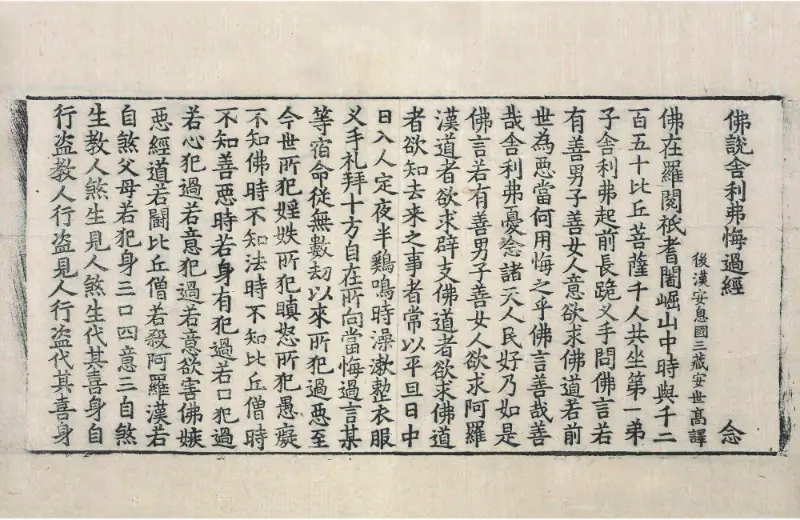 佛說舍利弗悔過經 念
後漢安息國三藏安世高譯
佛在羅閱祇耆闍崛山中時與千二
百五十比丘菩薩千人共坐第一弟
子舍利弗起前長跪叉手問佛言若
有善男子善女人意欲求佛道若前
世為惡當何用悔之乎佛言善哉善
哉舍利弗憂念諸天人民好乃如是
佛言若有善男子善女人欲求阿羅
漢道者欲求辟支佛道者欲求佛道
者欲知去来之事者常以平旦日中
日入人定夜半鷄鳴時澡漱整衣服
叉手礼拜十方自在所向當悔過言某
等宿命從無數劫以來所犯過惡至
今世所犯婬妷所犯瞋怒所犯愚癡
不知佛時不知法時不知比丘僧時
不知善惡時若身有犯過若口犯過
若心犯過若意犯過若意欲害佛嫉
惡經道若鬪比丘僧若殺阿羅漢若
自煞父母若犯身三口四意三自煞
生教人煞生見人煞生代其喜身自
行盜教人行盜見人行盜代其喜身